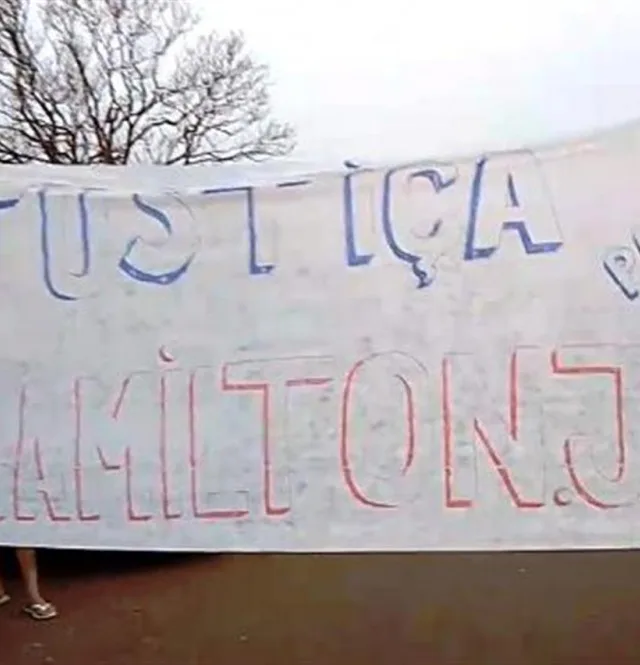 JUSTiÇA
HAMiLTON.J